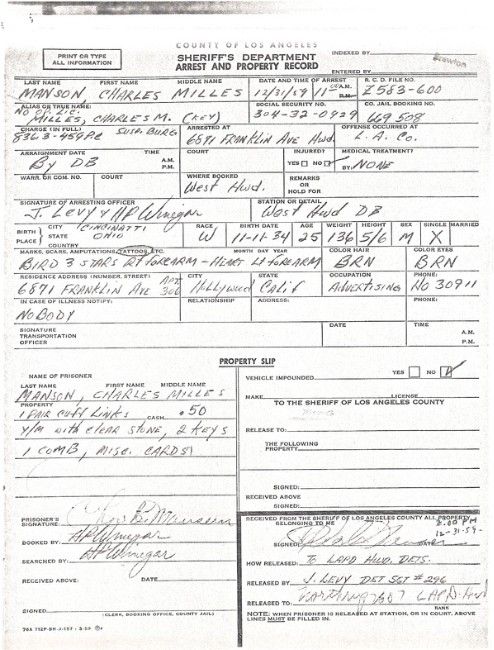 COUNTY OF LOS ANGELES
PRINT OR TYPE
ALL INFORMATION
SHERIFF'S DEPARTMENT
ARREST AND PROPERTY RECORD
INDEXED BY
ENTERED BY
LAST NAME FIRST NAME MIDDLE NAME DATE AND TIME OF ARREST R. C. D. FILE NO.
MANSON, CHARLES MILLES 12/31/59 11 A.M. P.M. Z583-600
ALIAS OR TRUE NAME: SOCIAL SECURITY NO. CO. JAIL BOOKING NO.
MILLES, CHARLES M. (KEY) 304-32-0429 669508
CHARGE (IN FULL) SUSP. BURG. ARRESTED AT OFFENSE OCCURRED AT
459PC 6871 FRANKLIN AVE HWD. L.A. CO.
ARRAIGNMENT DATE TIME COURT INJURED? MEDICAL TREATMENT?
By DB A.M. P.M. YES NO BY: NONE
WARR. OR COM. NO. COURT WHERE BOOKED REMARKS OR HOLD FOR
West Hwd.
SIGNATURE OF ARRESTING OFFICER STATION OR DETAIL
J. LEVY & HP Winegar West Hwd DB
BIRTH PLACE CITY STATE COUNTRY RACE BIRTH-DATE AGE WEIGHT HEIGHT SEX SINGLE MARRIED
CINCINATTI OHIO W 11-11-34 25 136 5/6 M X
MARKS, SCARS, AMPUTATIONS, TATTOOS, ETC. MONTH DAY YEAR COLOR HAIR COLOR EYES
BIRD 3 STARS RT FOREARM - HEART LT FOREARM BRN BRN
RESIDENCE ADDRESS (NUMBER, STREET) CITY STATE OCCUPATION PHONE:
6871 FRANKLIN AVE APT 306 Hollywood Calif ADVERTISING HO 30911
IN CASE OF ILLNESS NOTIFY: RELATIONSHIP ADDRESS: PHONE:
NOBODY
SIGNATURE TRANSPORTATION OFFICER DATE TIME A.M. P.M.
PROPERTY SLIP
NAME OF PRISONER
LAST NAME FIRST NAME MIDDLE NAME
MANSON, CHARLES MILLES
PROPERTY
1 PAIR CUFF LINKS CASH .50
Y/M WITH CLEAR STONE, 2 KEYS
1 COMB, MISC. CARDS
PRISONER'S SIGNATURE:
BOOKED BY: HP Winegar
SEARCHED BY: HP Winegar
RECEIVED ABOVE: DATE
SIGNED
(CLERK, BOOKING OFFICE, COUNTY JAIL)
VEHICLE IMPOUNDED YES NO
MAKE LICENSE
TO THE SHERIFF OF LOS ANGELES COUNTY
RELEASE TO:
THE FOLLOWING PROPERTY:
SIGNED:
RECEIVED ABOVE
SIGNED:
RECEIVED FROM THE SHERIFF OF LOS ANGELES COUNTY ALL PROPERTY BELONGING TO ME
2:00 PM
12-31-59
SIGNED:
HOW RELEASED: To LAPD Hwd. DETS.
RELEASED BY J. LEVY DET SGT #296
RELEASED TO: LAPD Hwd
RANK
NOTE: WHEN PRISONER IS RELEASED AT STATION, OR IN COURT, ABOVE LINES MUST BE FILLED IN.